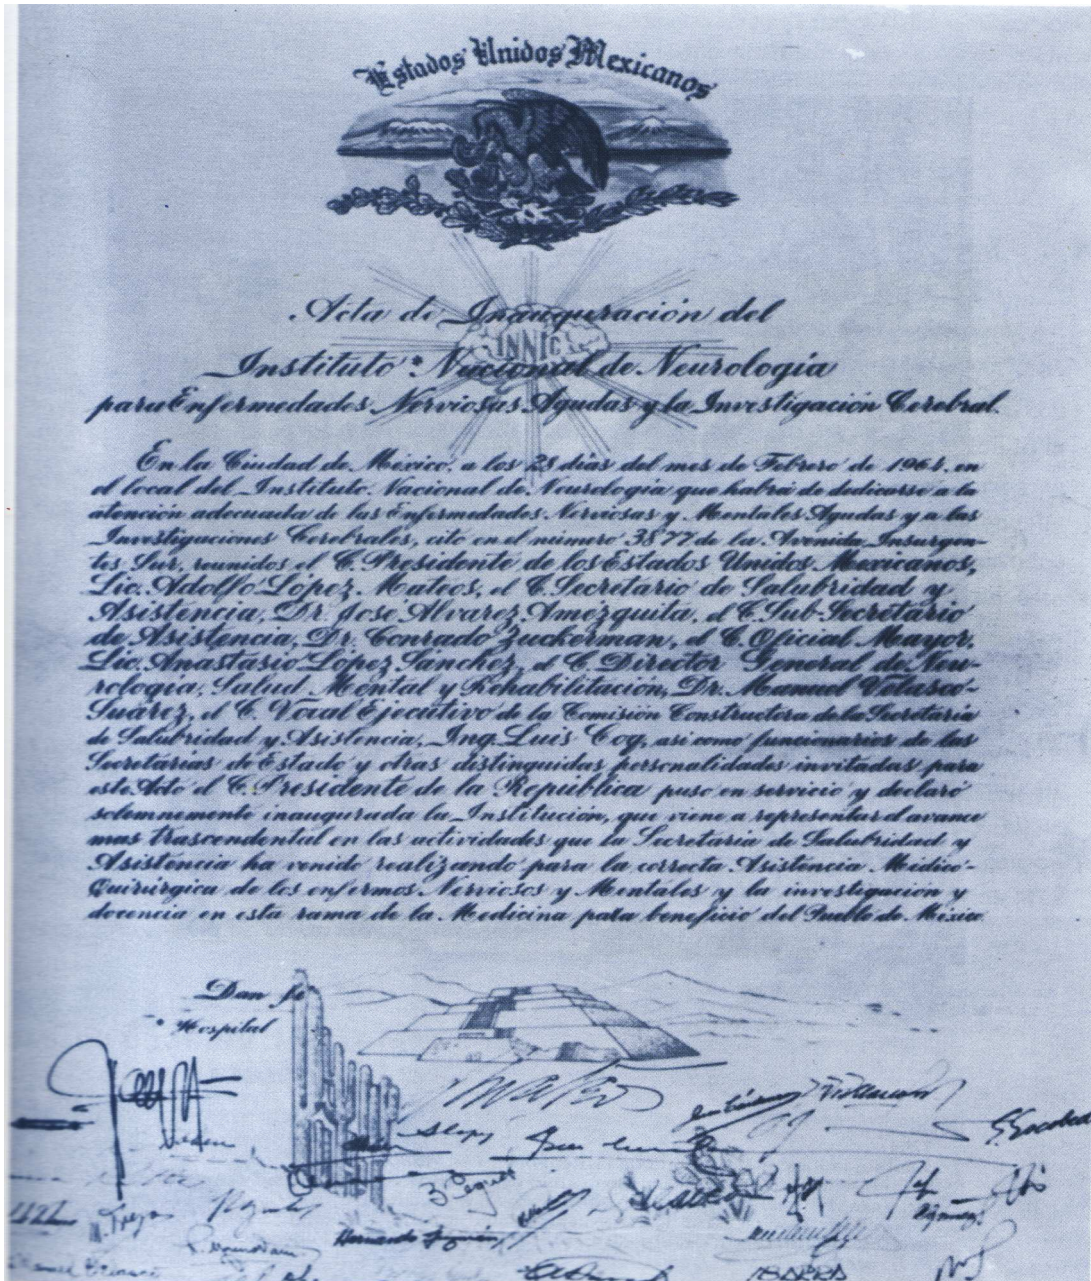 Estados Unidos Mexicanos
INNIC
Acta de Inauguración del
Instituto Nacional de Neurología
para Enfermedades Nerviosas Agudas y la Investigación Cerebral.
En la Ciudad de México, a los 28 días del mes de Febrero de 1964, en
el local del Instituto Nacional de Neurología que habrá de dedicarse a la
atención adecuada de las Enfermedades Nerviosas y Mentales Agudas y a las
Investigaciones Cerebrales, cito en el número 3877 de la Avenida Insurgen-
tes Sur, reunidos el C. Presidente de los Estados Unidos Mexicanos,
Lic. Adolfo López Mateos, el C. Secretario de Salubridad y
Asistencia, Dr. José Alvarez Amézquita, el C. Sub-Secretario
de Asistencia, Dr. Conrado Zuckerman, el C. Oficial Mayor,
Lic. Anastasio López Sánchez, el C. Director General de Neu-
rología, Salud Mental y Rehabilitación, Dr. Manuel Velasco-
Suárez, el C. Vocal Ejecutivo de la Comisión Constructora de la Secretaría
de Salubridad y Asistencia, Ing. Luis Coy, así como funcionarios de las
Secretarías de Estado y otras distinguidas personalidades invitadas para
este Acto el C. Presidente de la República puso en servicio y declaró
solemnemente inaugurada la Institución, que viene a representar el avance
mas trascendental en las actividades que la Secretaría de Salubridad y
Asistencia ha venido realizando para la correcta Asistencia Médico-
Quirúrgica de los enfermos Nerviosos y Mentales y la investigación y
docencia en esta rama de la Medicina para beneficio del Pueblo de México.
Dan fe
Hospital